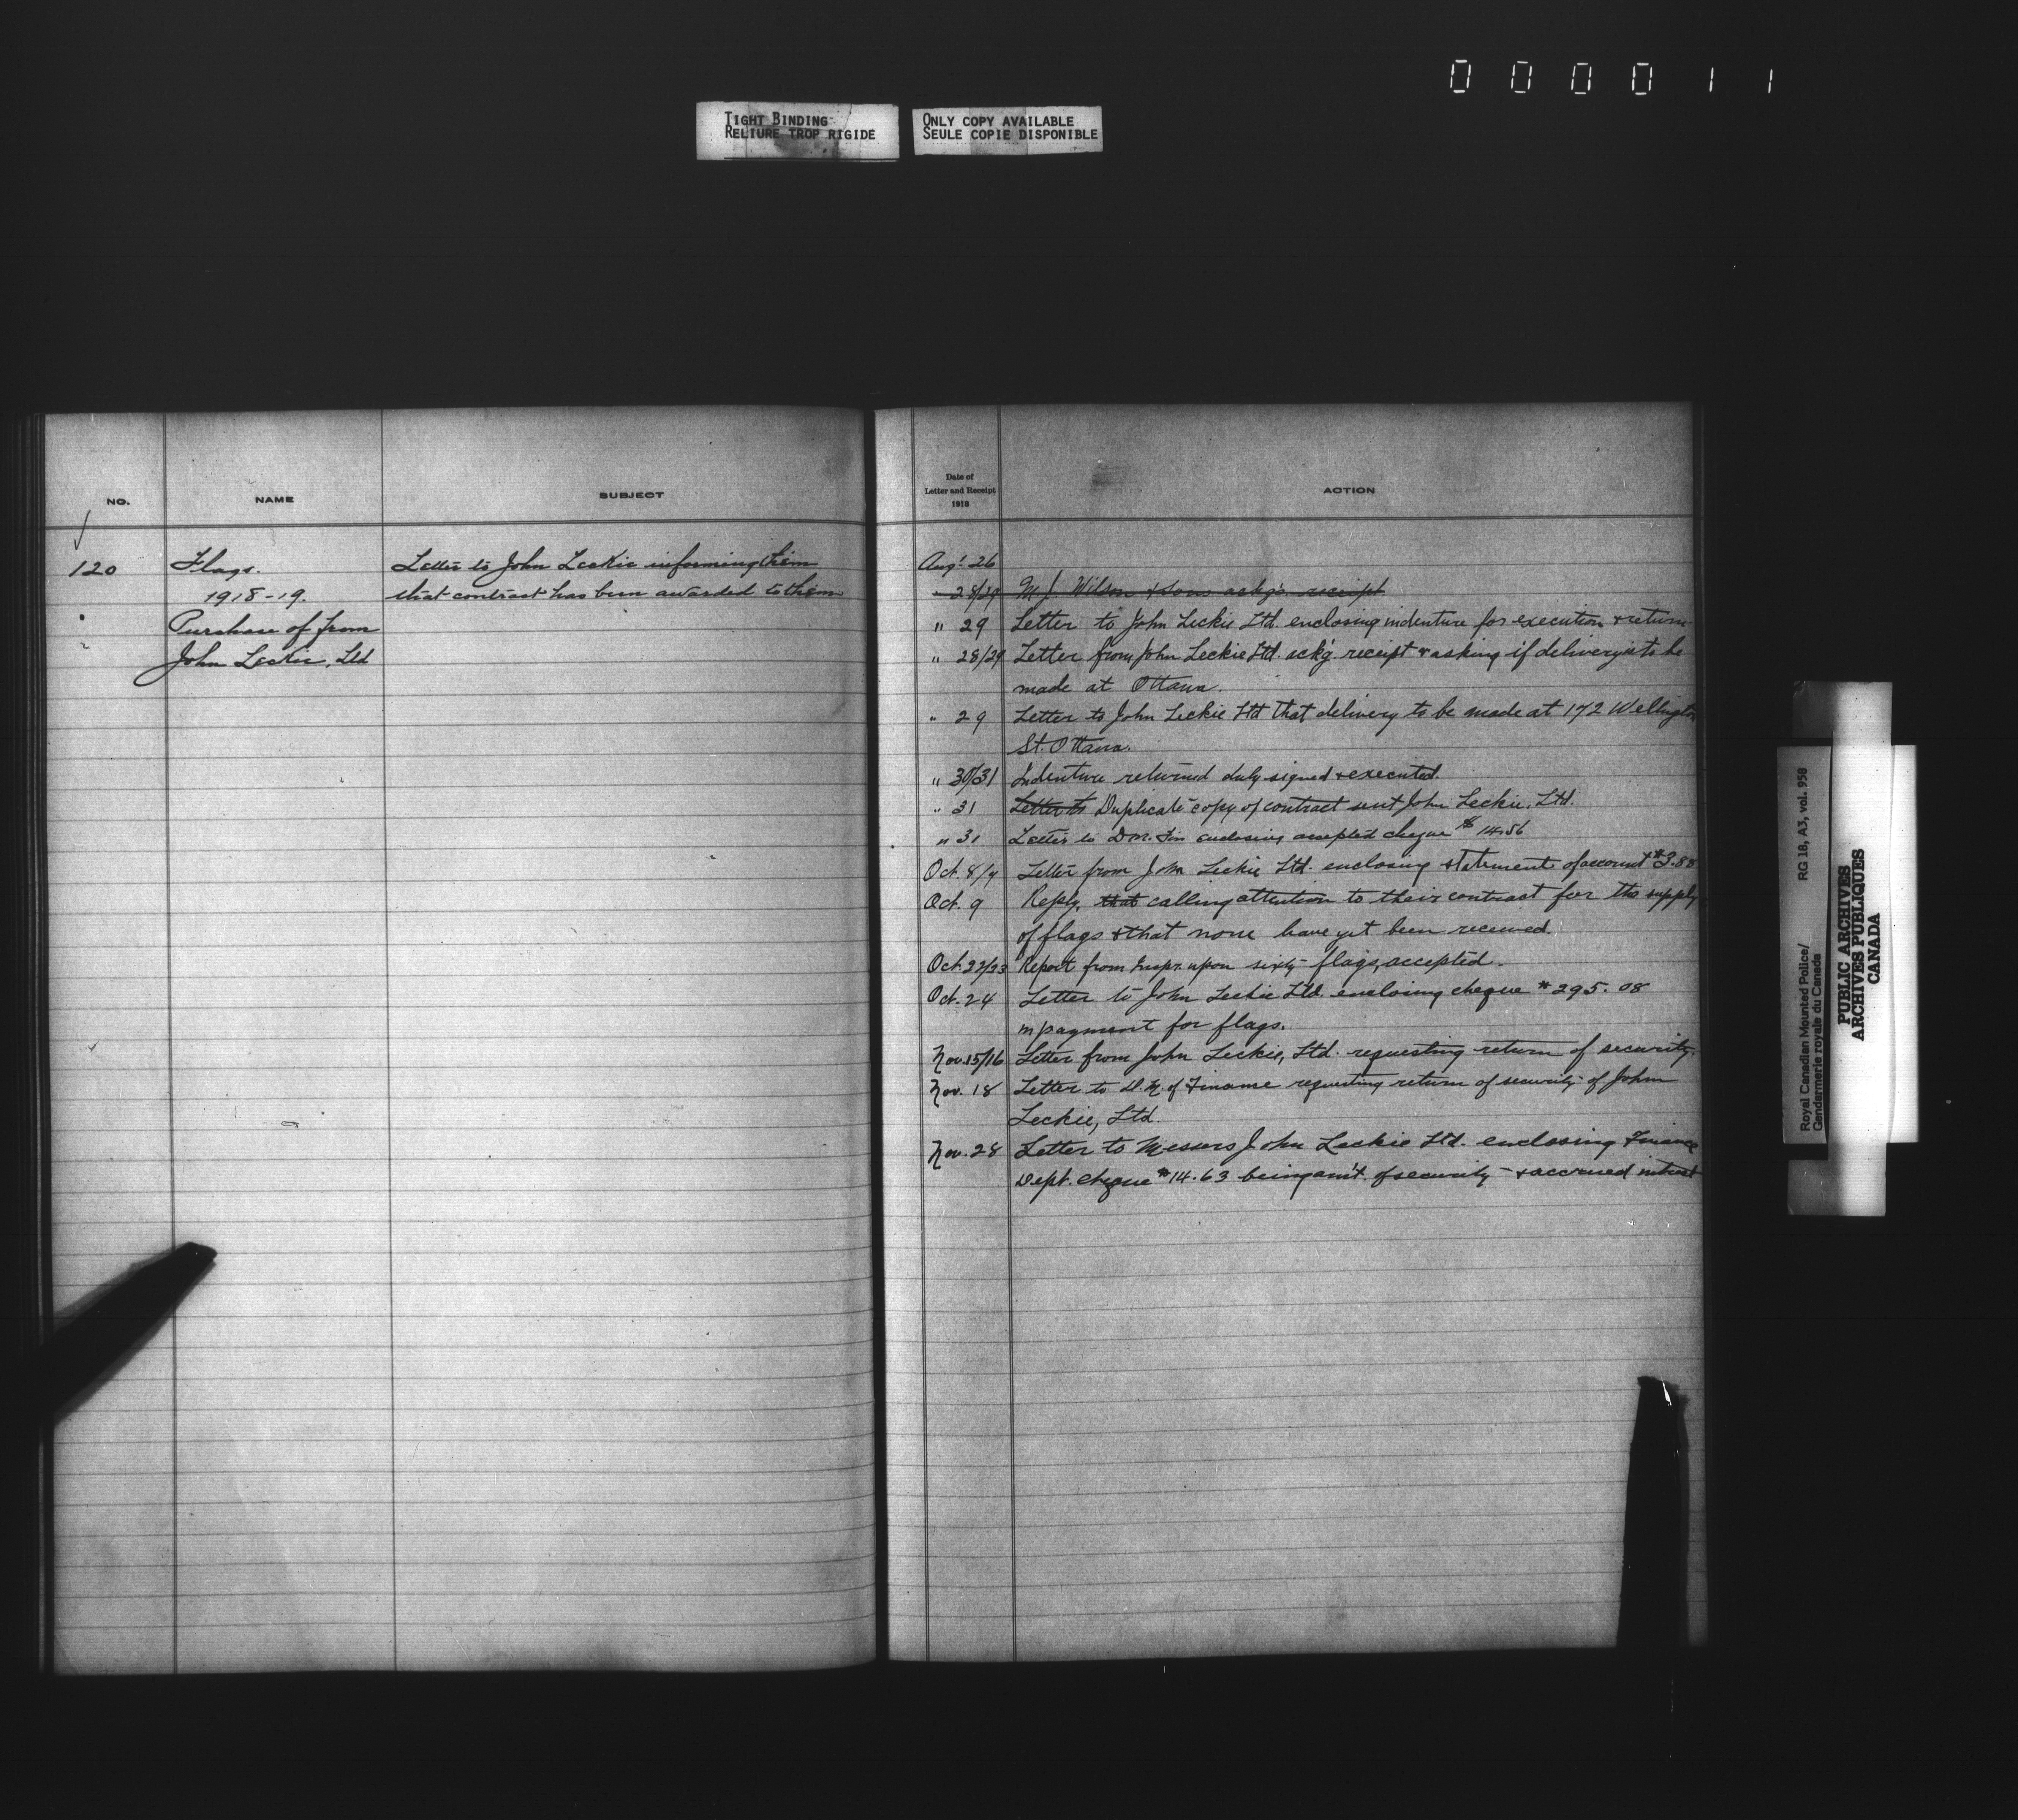 000011
TIGHT BINDING
RELIURE TROP RIGIDE
ONLY COPY AVAILABLE
SEULE COPIE DISPONIBLE
NO.
NAME
SUBJECT
120
Flags.
1918-19.
Purchase of from
John Leckie, Ltd
Letter to John Leckie informing them
that contract has been awarded to them
Date of
Letter and Receipt
1918
ACTION
Aug. 26
" 28/29 M J. Wilson & Sons ackg'g receipt
" 29 Letter to John Leckie Ltd. enclosing indenture for execution & return
" 28/29 Letter from John Leckie Ltd. ack'g receipt & asking if delivery is to be
made at Ottawa.
" 29 Letter to John Leckie Ltd that delivery to be made at 172 Wellington
St. Ottawa.
" 30/31 Indenture returned duly signed & executed.
" 31 Letter to Duplicate copy of contract sent John Leckie, Ltd.
" 31 Letter to D.M. Fin enclosing accepted cheque $14.56
Oct. 8/9 Letter from John Leckie Ltd. enclosing statement of account $3.88
Oct. 9 Reply, that calling attention to their contract for the supply
of flags & that none have yet been received.
Oct. 22/23 Report from Inspr. upon sixty flags, accepted.
Oct. 24 Letter to John Leckie Ltd. enclosing cheque $295.08
in payment for flags.
Nov. 15/16 Letter from John Leckie, Ltd. requesting return of security.
Nov. 18 Letter to D.M. of Finance requesting return of security of John
Leckie, Ltd.
Nov. 28 Letter to Messrs John Leckie Ltd. enclosing Finance
Dept. cheque $14.63 being am't. of security & accrued intrest
Royal Canadian Mounted Police/
Gendarmerie royale du Canada
RG 18, A3, vol. 958
PUBLIC ARCHIVES
ARCHIVES PUBLIQUES
CANADA